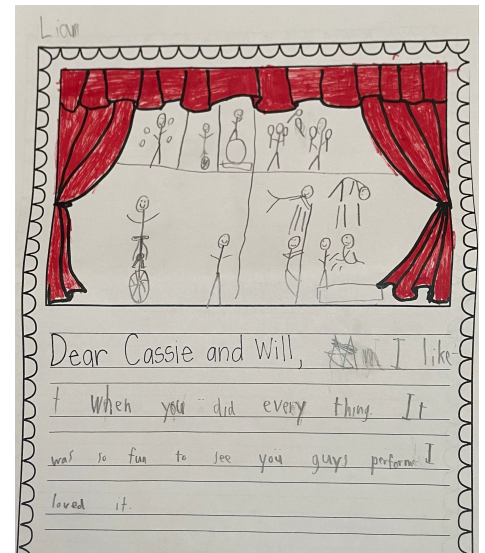 Liam
Dear Cassie and Will, I like
t when you did every thing. It
was so fun to see you guys perform I
loved it.